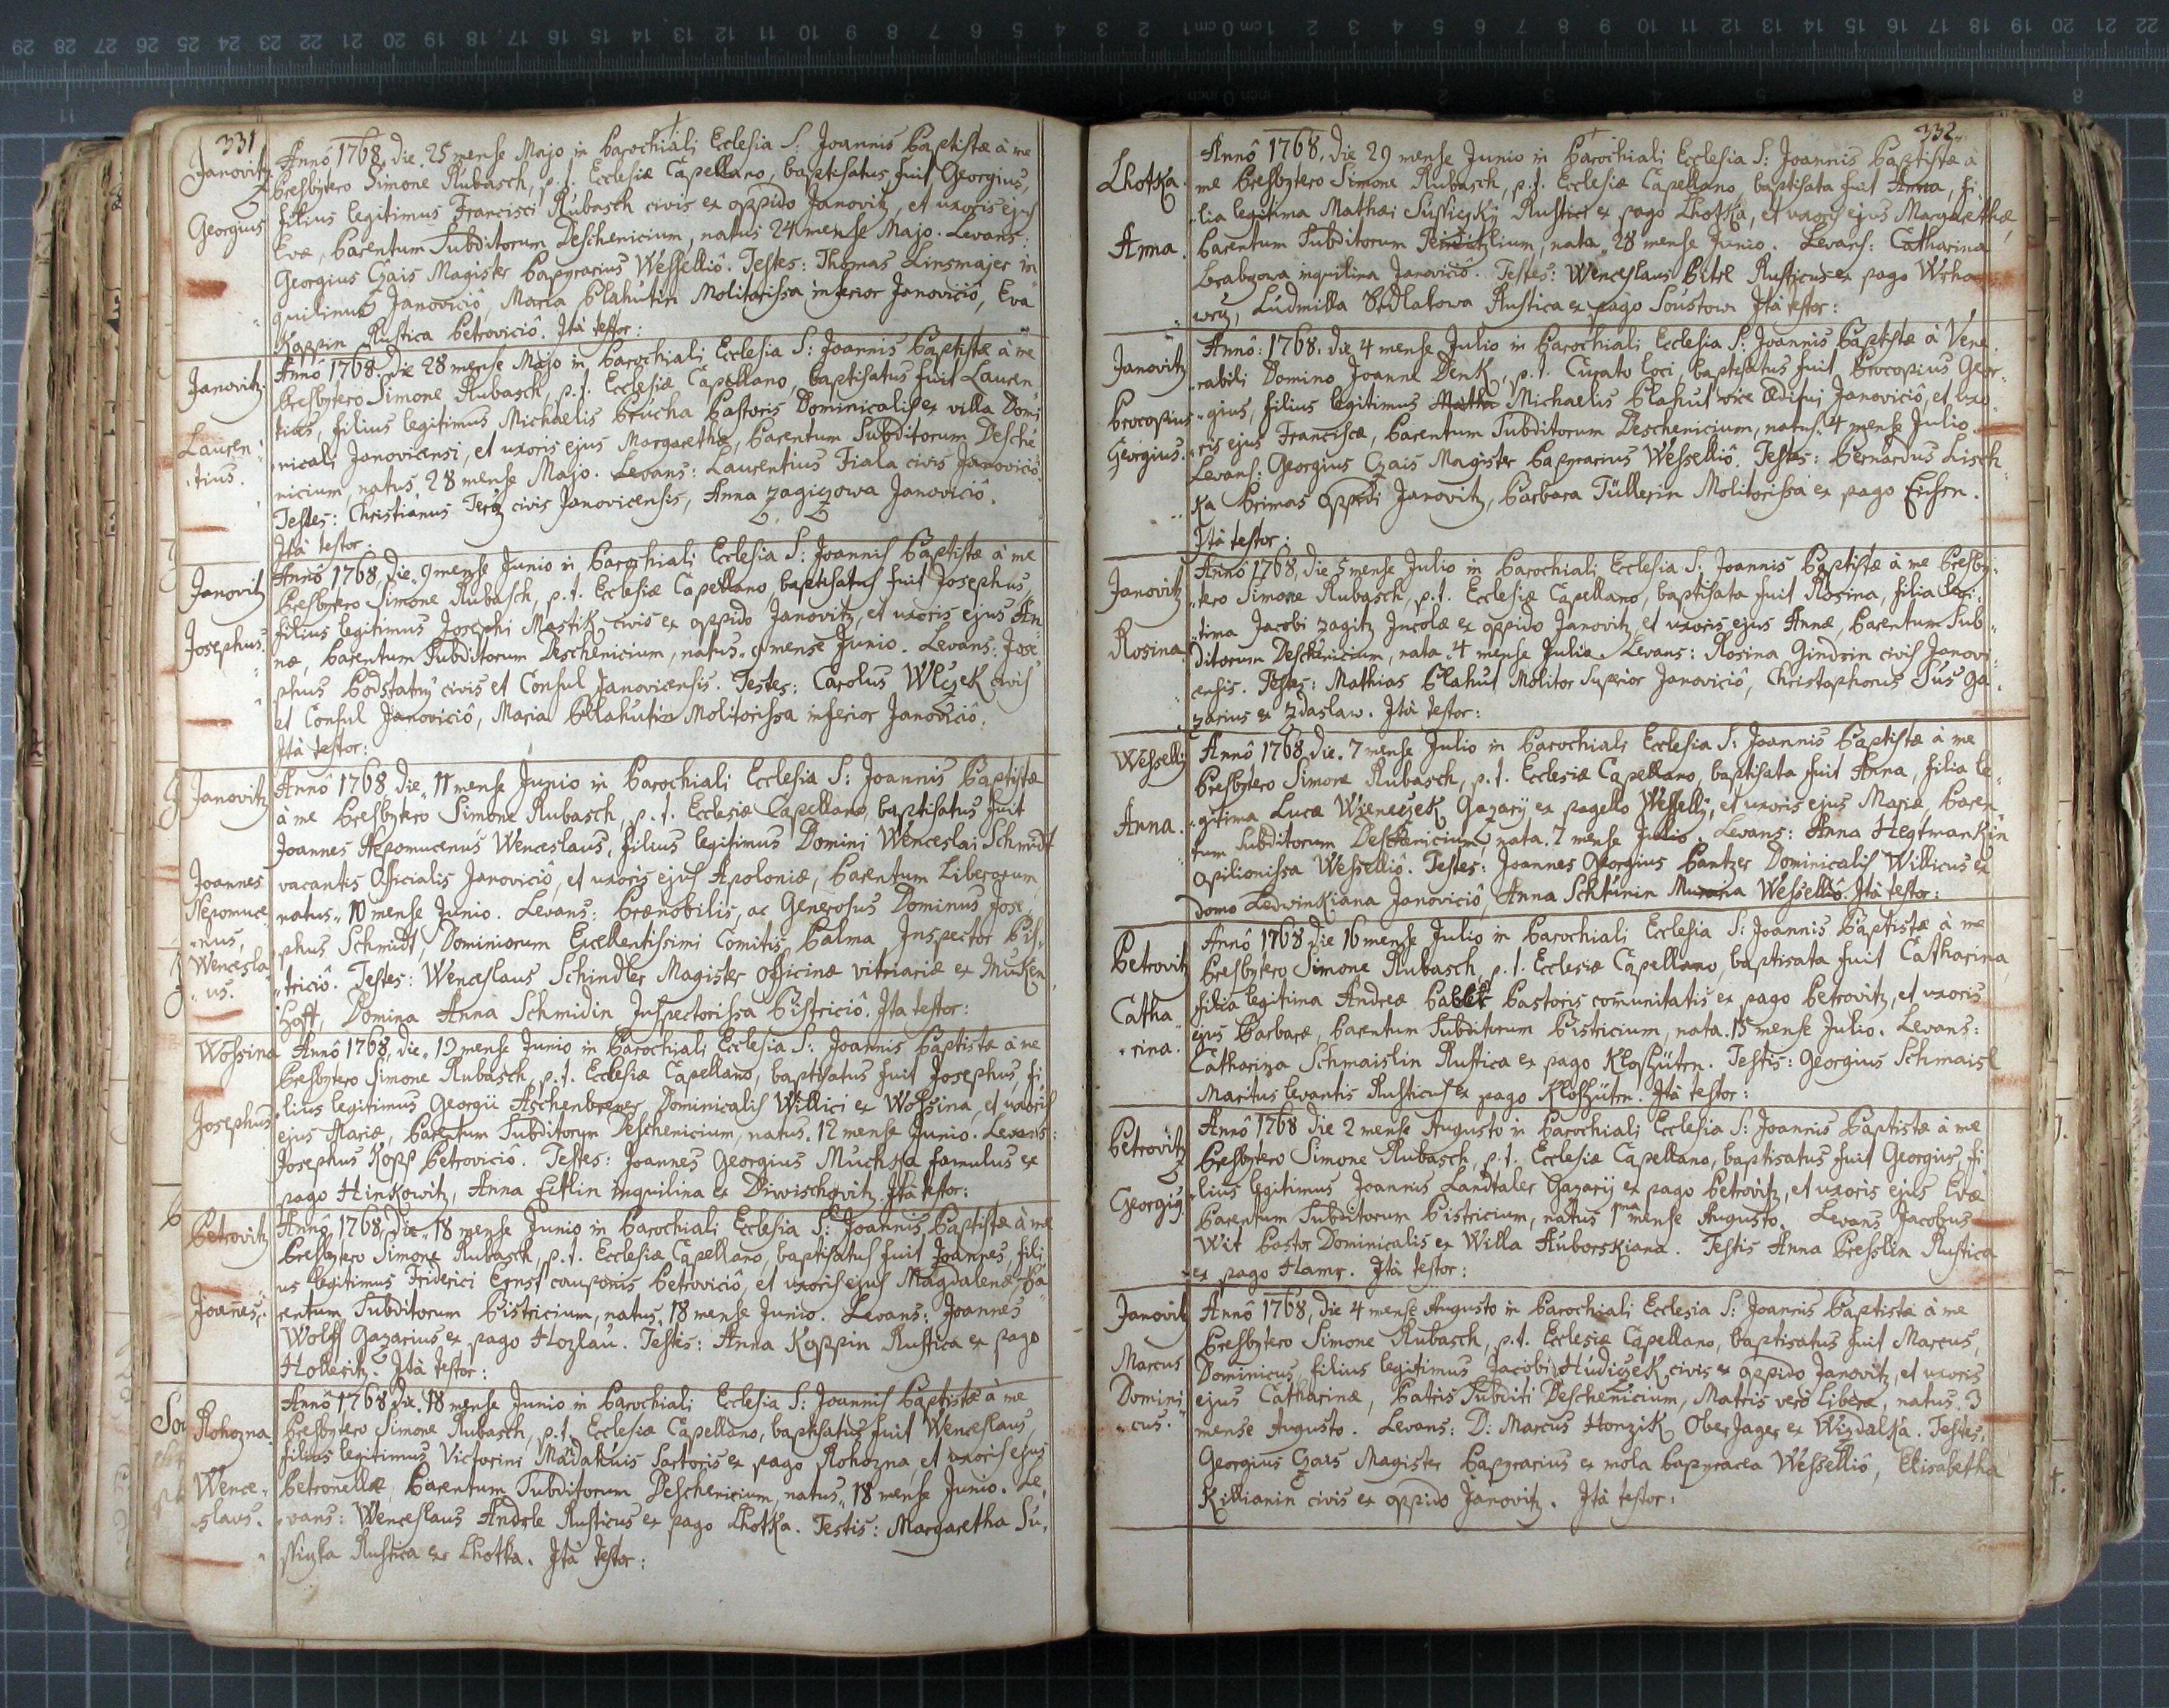 331
Janovitz
Georgius
Annô 1768. die. 25 mense Majo in Parochiali Ecclesia S: Joannis Baptistæ à me
Presbytero Simone Rubasch, p. t. Ecclesiæ Capellano, baptisatus fuit Georgius,
filius legitimus Francisci Rubasch civis ex oppido Janovitz, et uxoris ejus
Evæ, Parentum Subditorum Deschenicium, natus 24 mense Majo. Levans:
Georgius Czais Magister Papyrarius Wesselliô. Testes: Thomas Linsmajer in
quilinus Janoviciô, Maria Blahutin Molitorissa inferior Janoviciô, Eva
Koppin Rustica Petroviciô. Ità testor:
Janovitz
Lauren
tius.
Annô 1768. die 28 mense Majo in Parochiali Ecclesia S: Joannis Baptistæ à me
Presbytero Simone Rubasch, p. t. Ecclesiæ Capellano, baptisatus fuit Lauren
tius, filius legitimus Michaelis Prucha Pastoris Dominicalis ex villa Domi
nicali Janovicensi, et uxoris ejus Margarethæ, Parentum Subditorum Desche
nicium, natus 28 mense Majo. Levans: Laurentius Fiala civis Janoviciô.
Testes: Christianus civis Janovicensis, Anna Zagiczowa Janoviciô.
Ità testor:
Janovitz
Josephus
Annô 1768, die 9 mense Junio in Parochiali Ecclesia S: Joannis Baptistæ à me
Presbytero Simone Rubasch, p. t. Ecclesiæ Capellano, baptisatus fuit Josephus,
filius legitimus Josephi Mastik civis ex oppido Janovitz, et uxoris ejus An
næ, Parentum Subditorum Deschenicium, natus 9 mense Junio. Levans: Jose
phus Podstatny civis et Consul Janovicensis. Testes: Carolus Wlczek civis
et Consul Janoviciô, Maria Blahutin Molitorissa inferior Janoviciô.
Ità testor:
Janovitz
Joannes
Nepomuce
nus,
Wencesla
us.
Annô 1768, die 11 mense Junio in Parochiali Ecclesia S: Joannis Baptistæ
à me Presbytero Simone Rubasch, p. t. Ecclesiæ Capellano, baptisatus fuit
Joannes Nepomucenus Wenceslaus, filius legitimus Domini Wenceslai Schmidt
vacantis Officialis Janoviciô, et uxoris ejus Apoloniæ, Parentum Liberorum,
natus 10 mense Junio. Levans: Prænobilis, ac Generosus Dominus Jose
phus Schmidt, Dominiorum Excellentissimi Comitis Palma Inspector Bis
triciô. Testes: Wenceslaus Schindler Magister officinæ vitriariæ ex Mucken
Hoff, Domina Anna Schmidin Inspectorissa Bistriciô. Ita testor:
Wossina
Josephus
Annô 1768, die 13 mense Junio in Parochiali Ecclesia S: Joannis Baptistæ à me
Presbytero Simone Rubasch, p. t. Ecclesiæ Capellano, baptisatus fuit Josephus, fi
lius legitimus Georgii Aschenbrener Dominicalis Willici ex Wossina, et uxoris
ejus Mariæ, Parentum Subditorum Deschenicium, natus 12 mense Junio. Levans:
Josephus Kopp Petroviciô. Testes: Joannes Georgius Muchka famulus ex
pago Hinkowitz, Anna Eitlin inquilina ex Diwischovitz. Ità testor:
Petrovitz
Joannes.
Annô 1768, die 18 mense Junio in Parochiali Ecclesia S: Joannis Baptistæ à me
Presbytero Simone Rubasch, p. t. Ecclesiæ Capellano, baptisatus fuit Joannes, fili
us legitimus Friderici Ernst cauponis Petroviciô, et uxoris ejus Magdalenæ, Pa
rentum Subditorum Bistricium, natus 18 mense Junio. Levans: Joannes
Wolff Gazarius ex pago Hozlau. Testes: Anna Koppin Rustica ex pago
Holleritz. Ità testor:
Rohozna
Wence
slaus.
Annô 1768 die 18 mense Junio in Parochiali Ecclesia S: Joannis Baptistæ à me
Presbytero Simone Rubasch, p. t. Ecclesiæ Capellano, baptisatus fuit Wenceslaus,
filius legitimus Victorini Mudakuis Sartoris ex pago Rohozna, et uxoris ejus
Petronellæ, Parentum Subditorum Deschenicium, natus 18 mense Junio. Le
vans: Wenceslaus Andrle Rusticus ex pago Lhotka. Testis: Margaretha Su
Rustica ex Lhotka. Ità testor:
332.
Lhotka
Anna.
Annô 1768. die 29 mense Junio in Parochiali Ecclesia S: Joannis Baptistæ à
me Presbytero Simone Rubasch, p. t. Ecclesiæ Capellano, baptisata fuit Anna, fi
lia legitima Mathæi Rustici ex pago Lhotka, et uxoris ejus Margarethæ,
Parentum Subditorum nata 28 mense Junio. Levans: Catharina
inquilina Janoviciô. Testes: Wenceslaus Rusticus ex pago Wrha
wcz, Ludmilla Sedlatowa Rustica ex pago Soustow. Ità testor:
Janovitz
Procopius
Georgius.
Annô: 1768. die 4 mense Julio in Parochiali Ecclesia S: Joannis Baptistæ à Vene
rabili Domino Joanne Denk, p. t. Curato loci, baptisatus fuit Procopius Geor
gius, filius legitimus Michaelis Blahut vice Æditui Janoviciô, et uxo
ris ejus Franciscæ, Parentum Subditorum Deschenicium, natus 4 mense Julio.
Levans: Georgius Czais Magister Papyrarius Wesselliô. Testes: Bernardus Lisch
ka Primas Oppidi Janovitz, Barbara Tüllerin Molitorissa ex pago Eissn.
Ità testor:
Janovitz
Rosina
Annô 1768, die 5 mense Julio in Parochiali Ecclesia S: Joannis Baptistæ à me Presby
tero Simone Rubasch, p. t. Ecclesiæ Capellano, baptisata fuit Rosina, filia legi
tima Jacobi Zagitz Incolæ ex oppido Janovitz, et uxoris ejus Annæ, Parentum Sub
ditorum Deschenicium, nata 4 mense Julio. Levans: Rosina Gindrin civis Janovi
censis. Testes: Mathias Blahut Molitor Superior Janoviciô, Christophorus Sus Ga
zarius ex Zdaslaw. Ità testor:
Wesselly
Anna.
Annô 1768, die. 7 mense Julio in Parochiali Ecclesia S: Joannis Baptistæ à me
Presbytero Simone Rubasch, p. t. Ecclesiæ Capellano, baptisata fuit Anna, filia le
gitima Lucæ Wieneczek Gazarij ex pagello Wesselly, et uxoris ejus Mariæ, Paren
tum Subditorum Deschenicium, nata 7 mense Julio. Levans: Anna Hegtmankin
Opilionissa Wesselliô. Testes: Joannes Georgius Pantzer Dominicalis Willicus ex
domo Ledwinkiana Janoviciô, Anna Schturin Wesselliô. Ità testor:
Petrovitz
Catha
rina.
Annô 1768 die 16 mense Julio in Parochiali Ecclesia S: Joannis Baptistæ à me
Presbytero Simone Rubasch, p. t. Ecclesiæ Capellano, baptisata fuit Catharina,
filia legitima Andreæ Pastoris comunitatis ex pago Petrovitz, et uxoris
ejus Barbaræ, Parentum Subditorum Bistricium, nata 15 mense Julio. Levans:
Catharina Schmaislin Rustica ex pago KlosHütrn. Testis: Georgius Schmaisl
Maritus levantis Rusticus ex pago KlosHütrn. Ità testor:
Petrovitz
Georgius
Annô 1768 die 2 mense Augusto in Parochiali Ecclesia S: Joannis Baptistæ à me
Presbytero Simone Rubasch, p. t. Ecclesiæ Capellano, baptisatus fuit Georgius, fi
lius legitimus Joannis Landtaler Gazarij ex pago Petrovitz, et uxoris ejus Evæ
Parentum Subditorum Bistricium, natus 1ma mense Augusto. Levans Jacobus
Wit Pastor Dominicalis ex Willa Auborskiana. Testis Anna Presslin Rustica
ex pago Hamr. Ità testor:
Janovitz
Marcus
Domini
cus.
Annô 1768, die 4 mense Augusto in Parochiali Ecclesia S: Joannis Baptistæ à me
Presbytero Simone Rubasch, p. t. Ecclesiæ Capellano, baptisatus fuit Marcus,
Dominicus, filius legitimus Jacobi Hudiczek civis ex oppido Janovitz, et uxoris
ejus Catharinæ, Patris Subditi Deschenicium, Matris verò liberæ, natus 3
mense Augusto. Levans: D: Marcus Honzik Ober Jager ex Wizdalka. Testes,
Georgius Czais Magister Papyrarius ex mola papyracea Wesselliô, Elisabetha
Killianin civis ex oppido Janovitz. Ità testor: